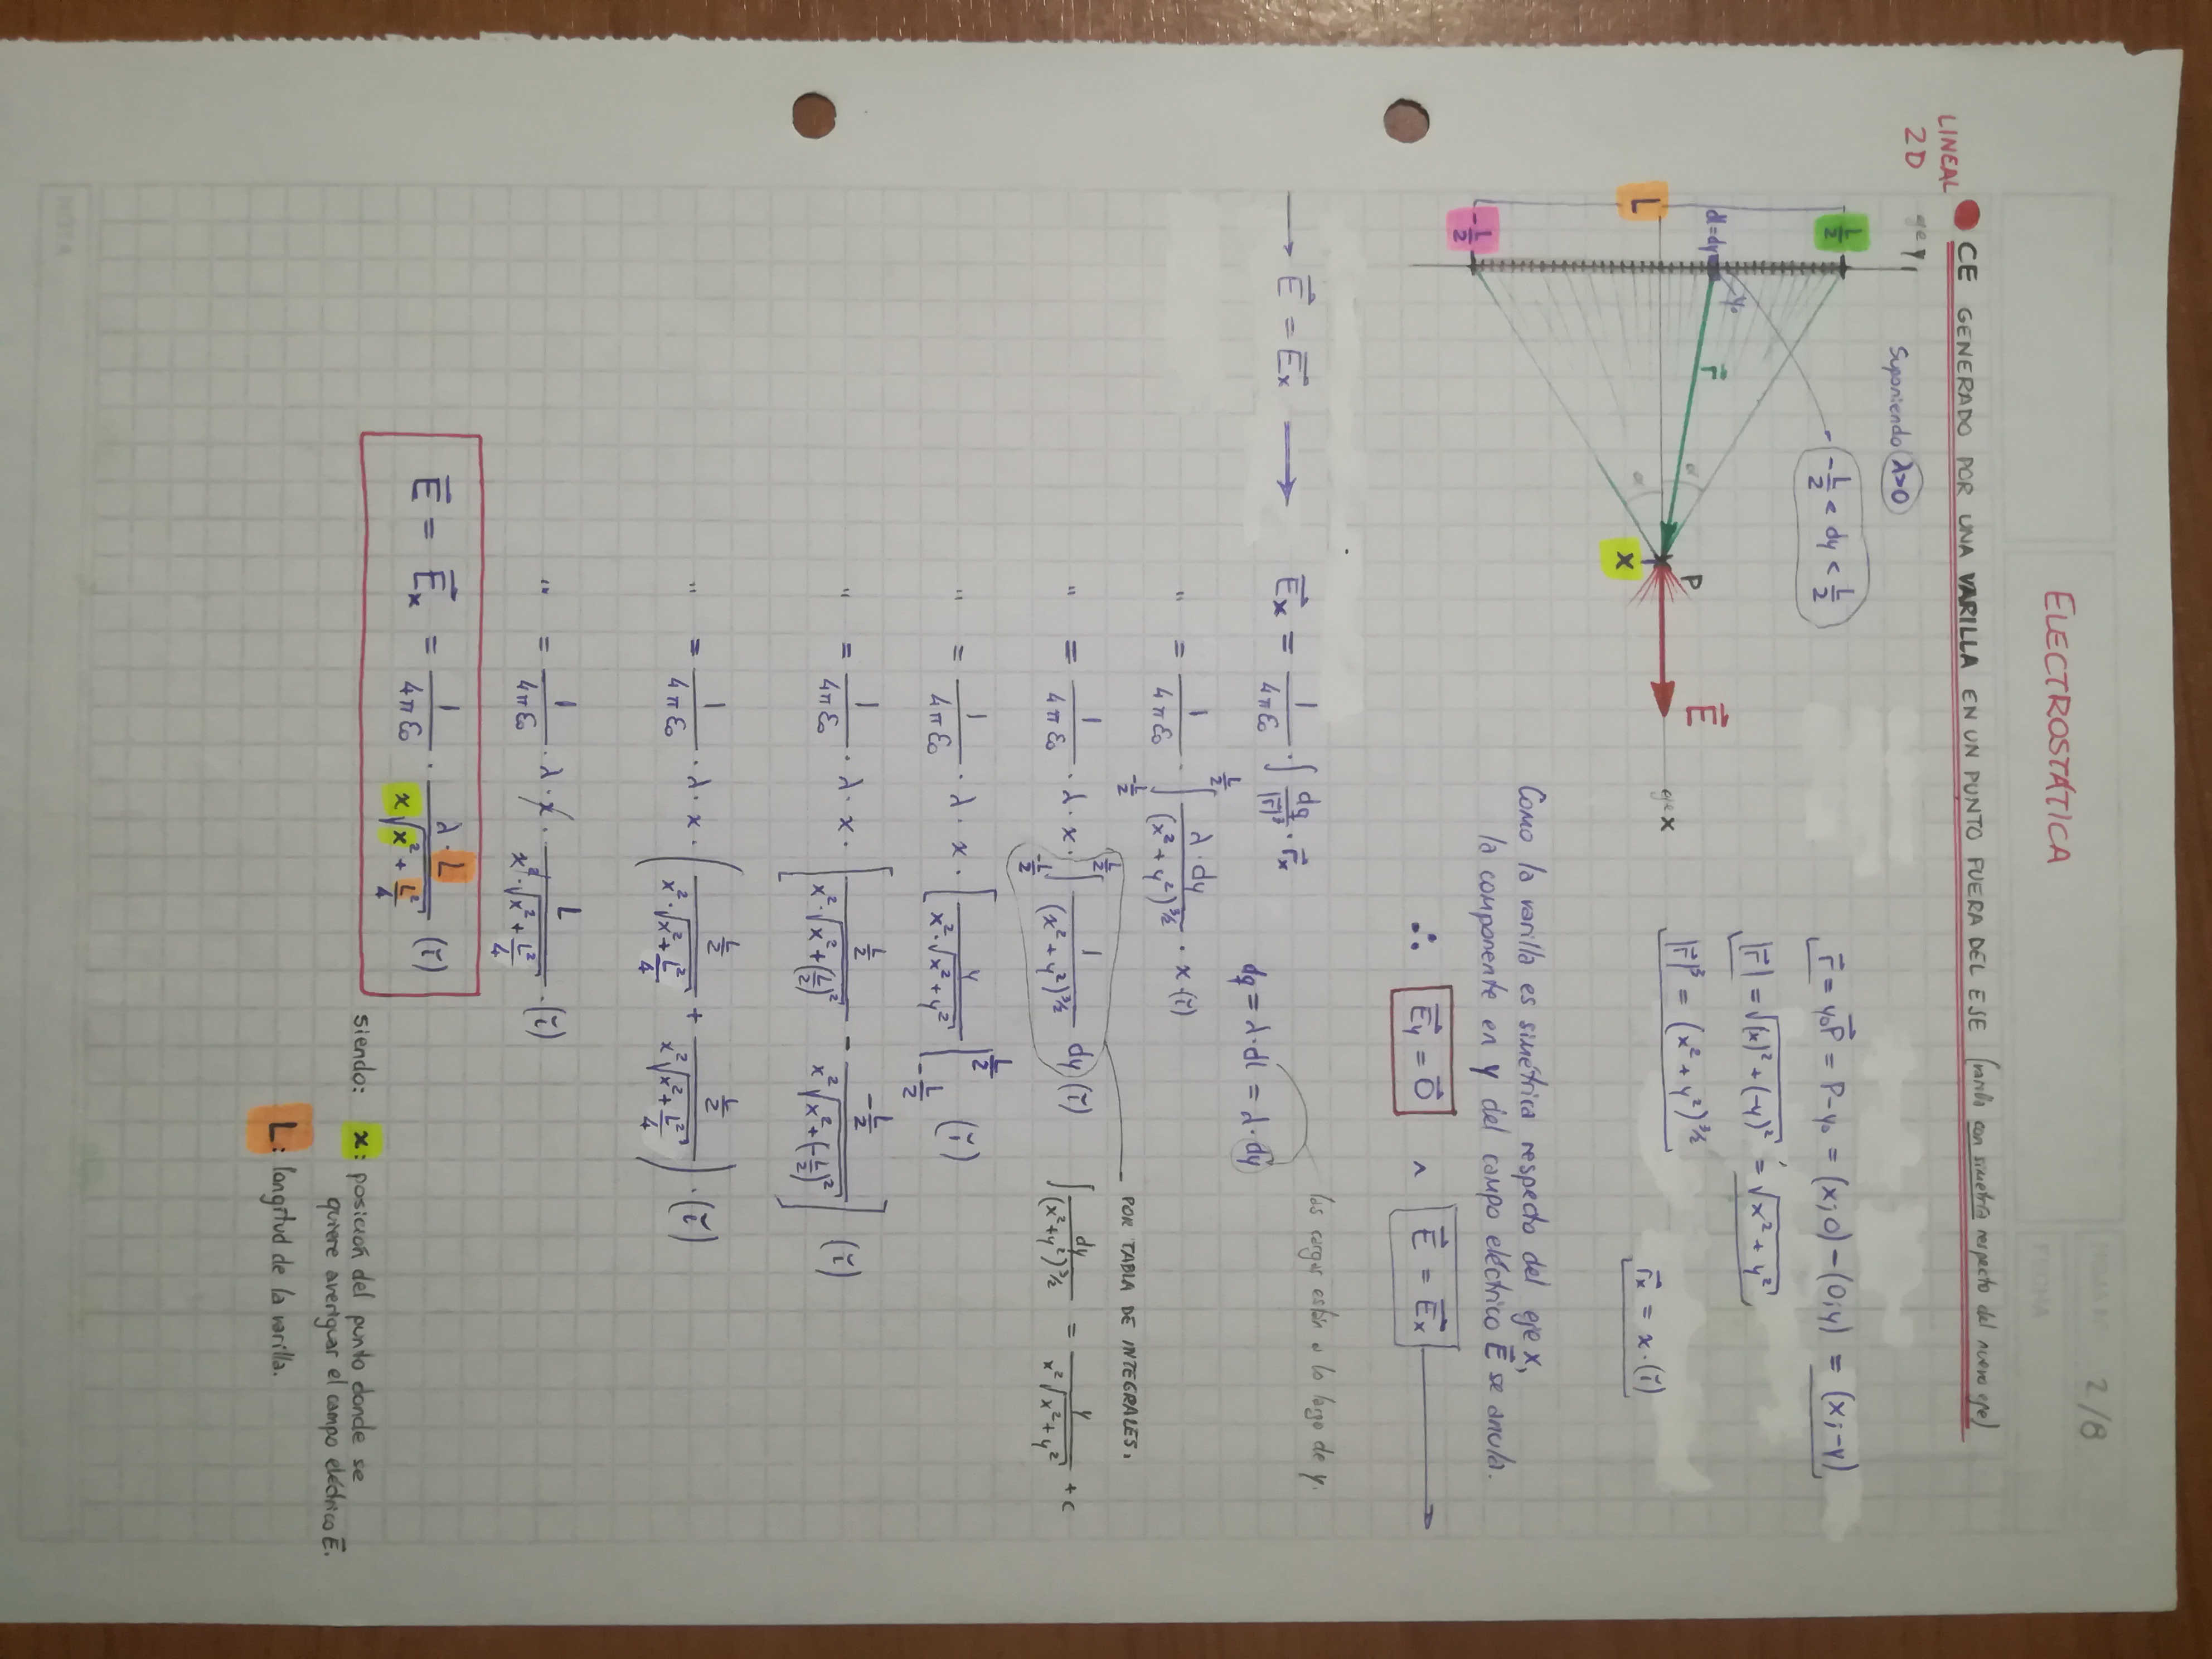 HOJA Nº 2/8
ELECTROSTÁTICA
FECHA
CE GENERADO POR UNA VARILLA EN UN PUNTO FUERA DEL EJE (varilla con simetría respecto del nuevo eje)
LINEAL
2D
eje y
Suponiendo λ>0
L/2
-L/2 < dy < L/2
y₀
dl=dy
r⃗
α
P
E⃗
eje x
L
α
x
-L/2
r⃗ = y₀P⃗ = P-y₀ = (x;0)-(0;y) = (x;-y)
|r⃗| = √((x)²+(-y)²) = √(x²+y²)
|r⃗|³ = (x²+y²)^(3/2)
r⃗x = x·(ĭ)
Como la varilla es simétrica respecto del eje x,
la componente en y del campo eléctrico E⃗ se anula.
∴ E⃗y = 0⃗ ^ E⃗ = E⃗x →
→ E⃗ = E⃗x → E⃗x = 1/(4πε₀) · ∫ dq/|r⃗|³ · r⃗x
las cargas están a lo largo de y.
dq = λ·dl = λ·dy
" = 1/(4πε₀) · ∫_{-L/2}^{L/2} λ·dy/(x²+y²)^(3/2) · x·(ĭ)
POR TABLA DE INTEGRALES.
" = 1/(4πε₀) · λ · x · ∫_{-L/2}^{L/2} 1/(x²+y²)^(3/2) dy (ĭ)
∫ dy/(x²+y²)^(3/2) = y/(x²√(x²+y²)) + c
" = 1/(4πε₀) · λ · x · [ y/(x²·√(x²+y²)) |_{-L/2}^{L/2} (ĭ)
" = 1/(4πε₀) · λ · x · [ (L/2)/(x²·√(x²+(L/2)²)) - (-L/2)/(x²√(x²+(-L/2)²)) ] (ĭ)
" = 1/(4πε₀) · λ · x · ( (L/2)/(x²·√(x²+L²/4)) + (L/2)/(x²√(x²+L²/4)) ) · (ĭ)
" = 1/(4πε₀) · λ · x · L/(x²·√(x²+L²/4)) · (ĭ)
E⃗ = E⃗x = 1/(4πε₀) · λ·L/(x√(x²+L²/4)) (ĭ)
siendo: x: posición del punto donde se
quiere averiguar el campo eléctrico E⃗.
L: longitud de la varilla.
NOTA